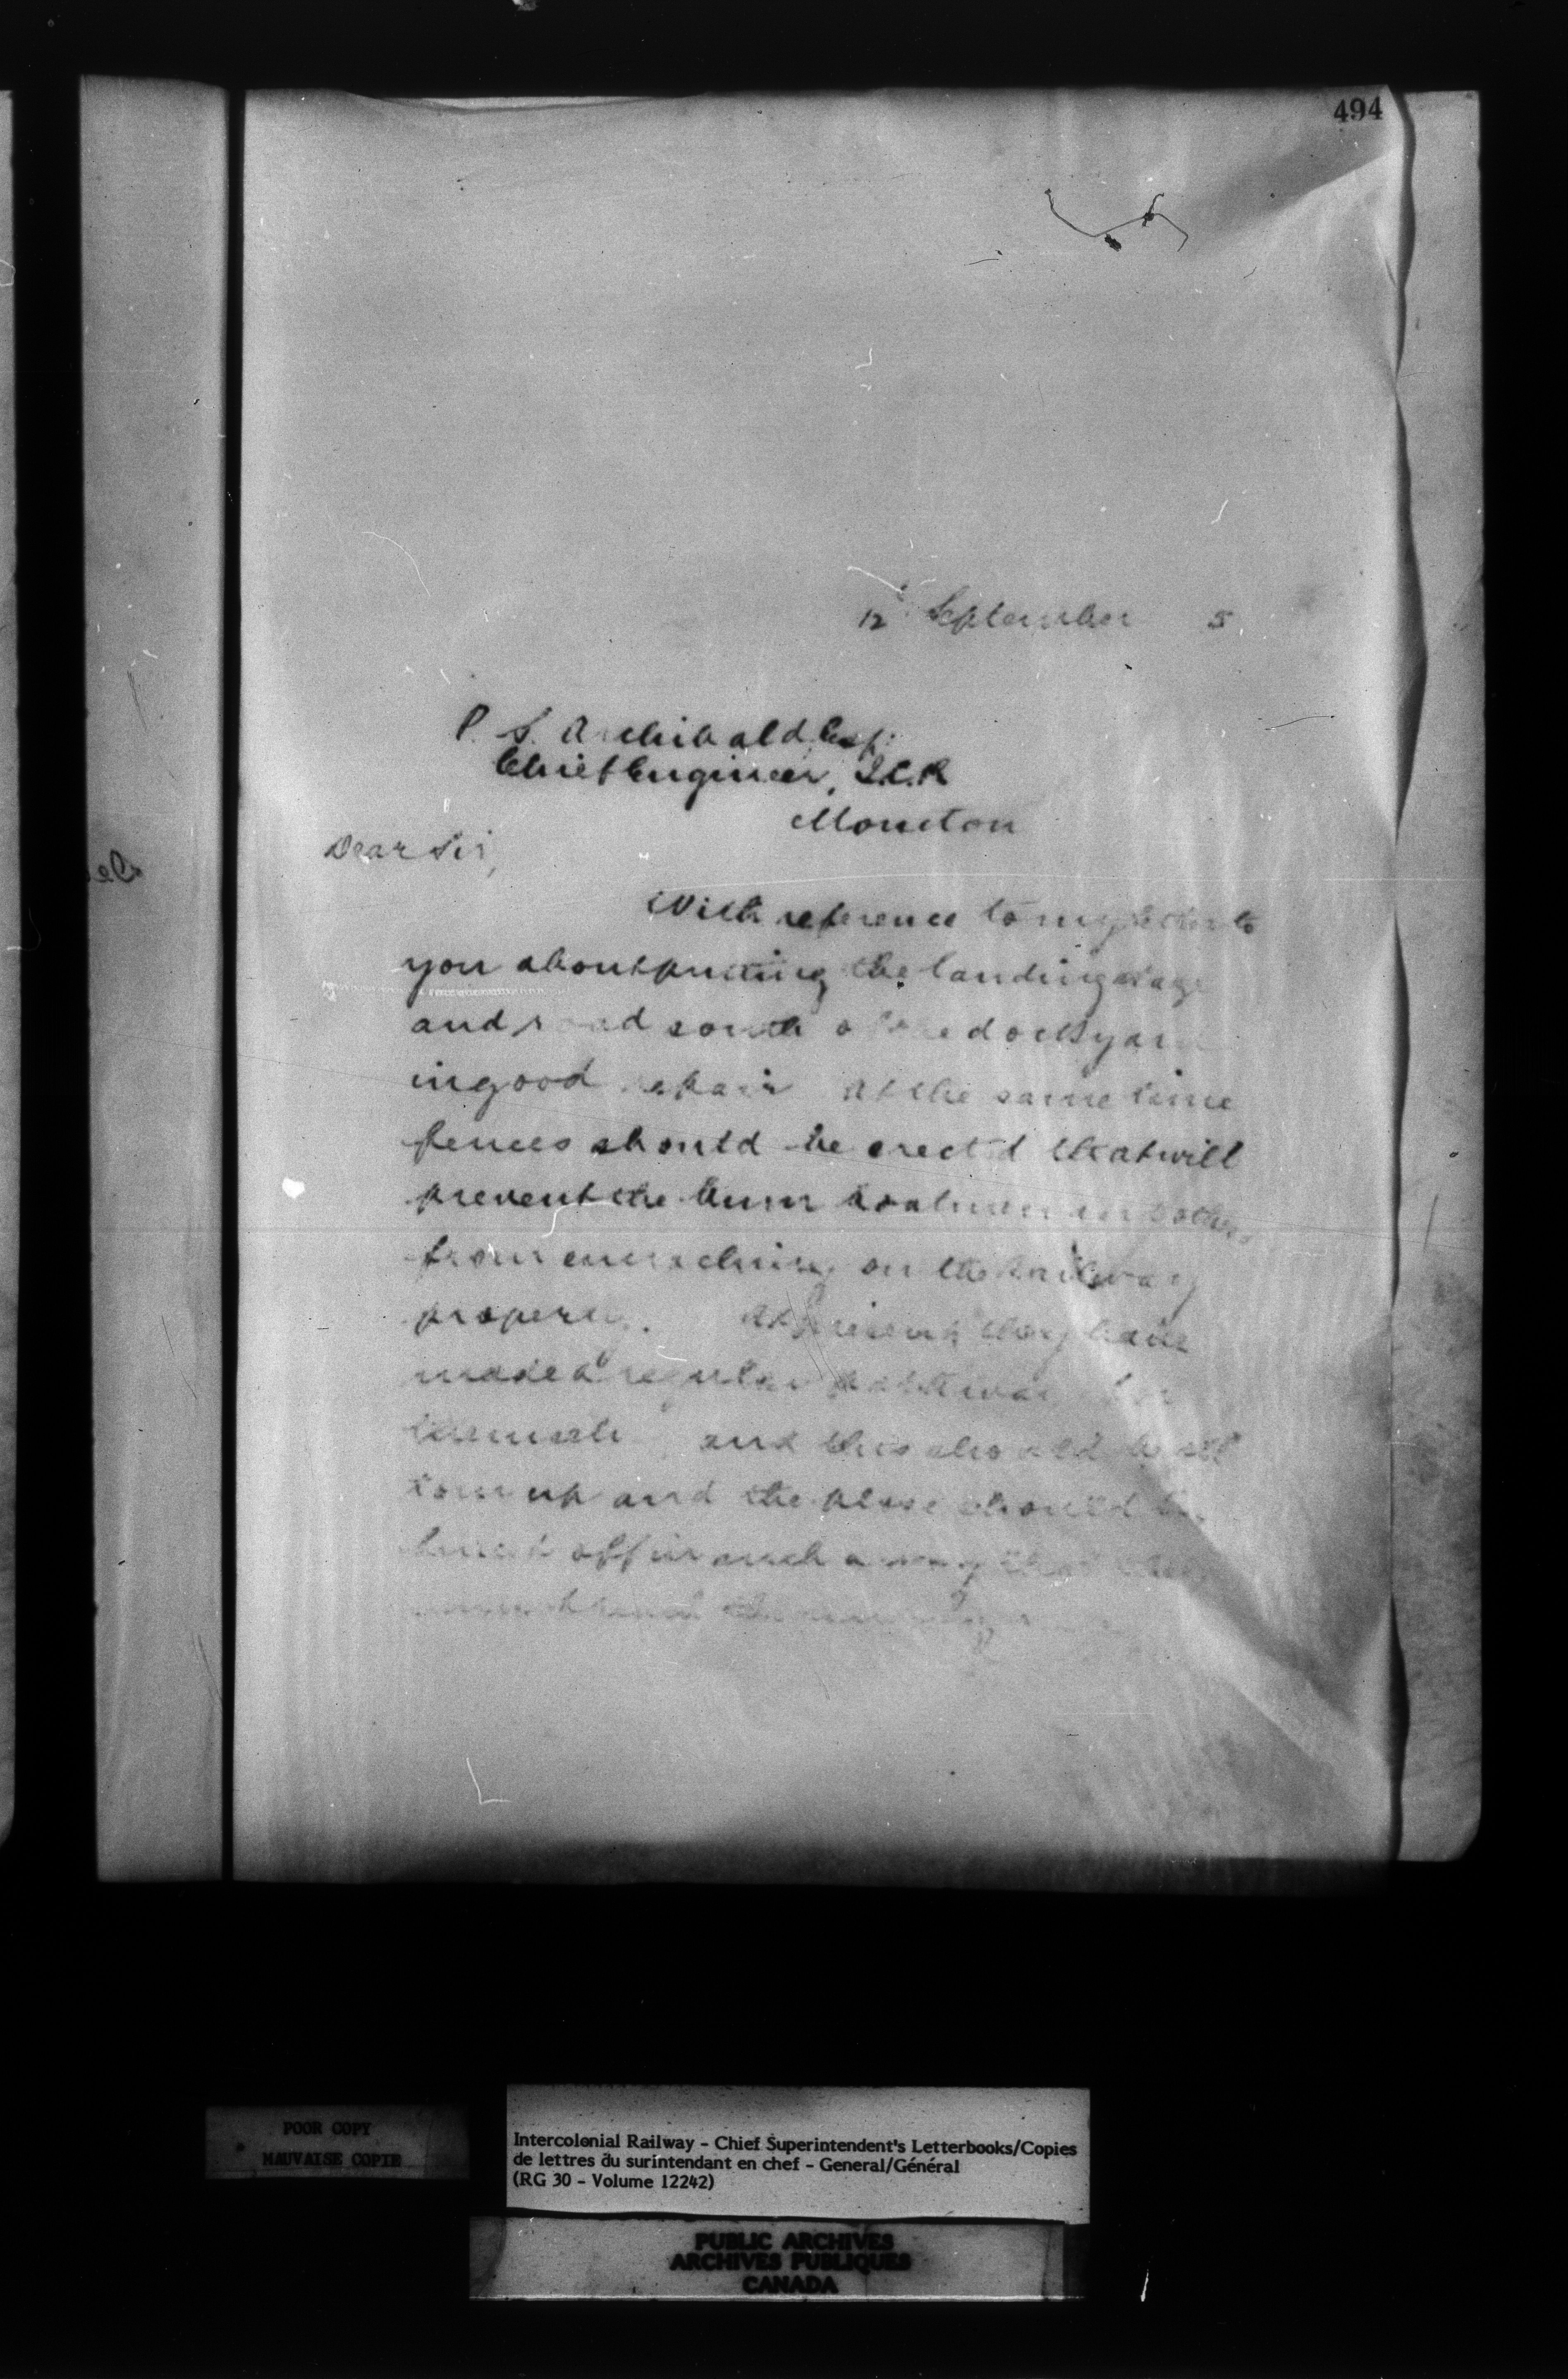 494
12 September 5
P. S. Archibald Esq.
Chief Engineer, I.C.R
Moncton
Dear Sir,
With reference to my letter to
you about putting the landing stage
and road south of the dockyard
in good repair At the same time
fences should be erected that will
prevent the boatmen and others
from encroaching on the Railway
property. At present they have
made a regular pathway for
and this should be all
torn up and the place should be
off in such a way that they
POOR COPY
MAUVAISE COPIE
Intercolonial Railway - Chief Superintendent's Letterbooks/Copies
de lettres du surintendant en chef - General/Général
(RG 30 - Volume 12242)
PUBLIC ARCHIVES
ARCHIVES PUBLIQUES
CANADA